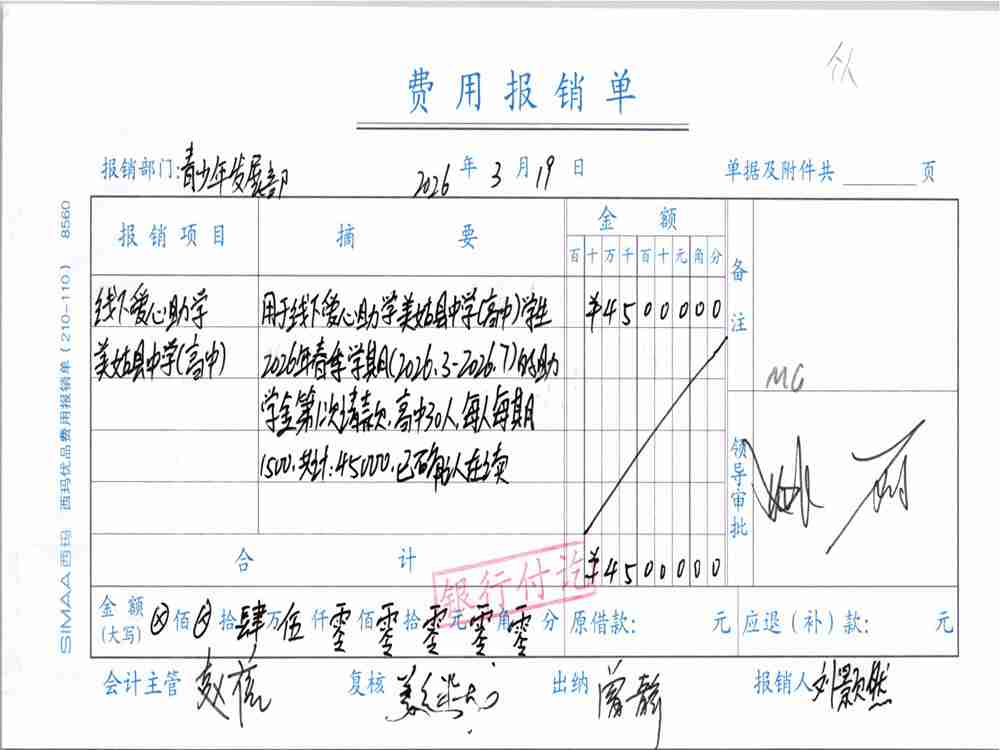 费用报销单
报销部门:青少年发展部 2026年3月19日 单据及附件共 页
报销项目 摘要 金额 备注
百十万千百十元角分
线下爱心助学 用于线下爱心助学美姑县中学(高中)学生 ¥4500000
美姑县中学(高中) 2026年春季学期(2026.3-2026.7)的助
学金第1次请款,高中30人,每人每期
1500.共计:45000.已确认在读
MG
领导审批
合计 ¥4500000
银行付讫
金额(大写) ⊗佰⊗拾肆万伍仟零佰零拾零元零角零分 原借款: 元 应退(补)款: 元
会计主管 复核 出纳 曾静 报销人 刘颢然
SIMAA西玛 西玛优品费用报销单(210-110) 8560